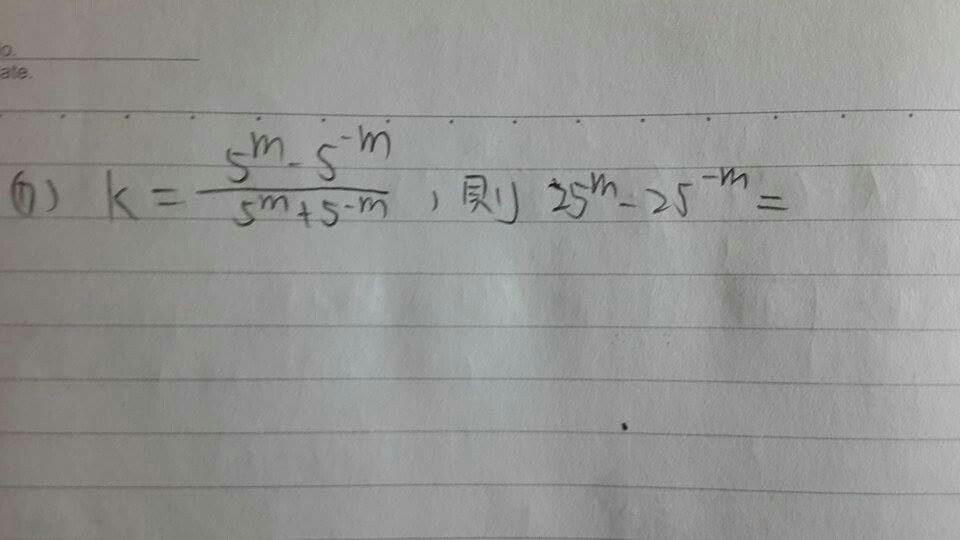 o.
ate.
(6) k = \frac{5^m - 5^{-m}}{5^m + 5^{-m}} , 則 25^m - 25^{-m} =